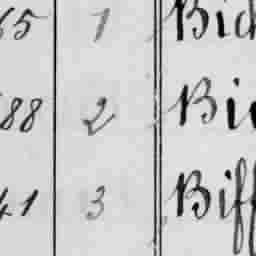 65 1 Bich
88 2 Bi
41 3 Biff